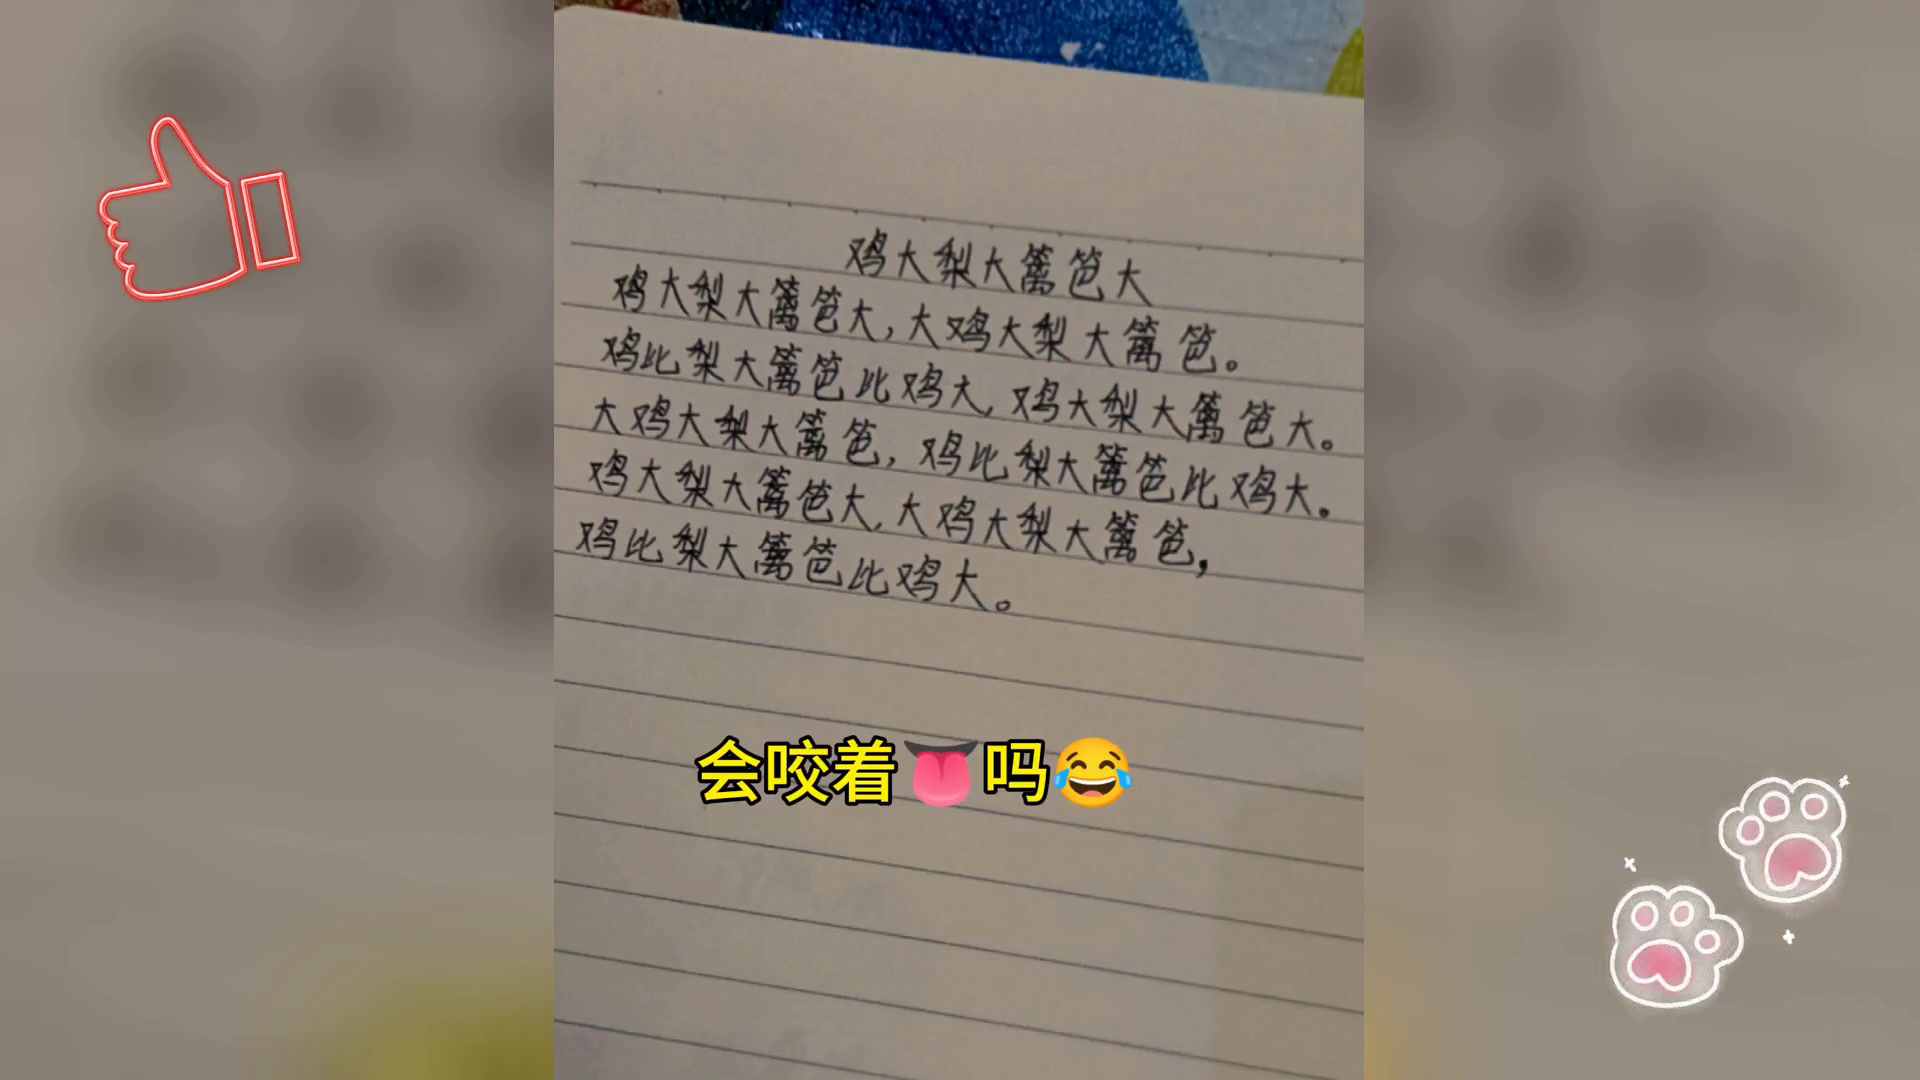 鸡大梨大篱笆大
鸡大梨大篱笆大,大鸡大梨大篱笆。
鸡比梨大篱笆比鸡大,鸡大梨大篱笆大。
大鸡大梨大篱笆,鸡比梨大篱笆比鸡大。
鸡大梨大篱笆大,大鸡大梨大篱笆,
鸡比梨大篱笆比鸡大。
会咬着👅吗😂